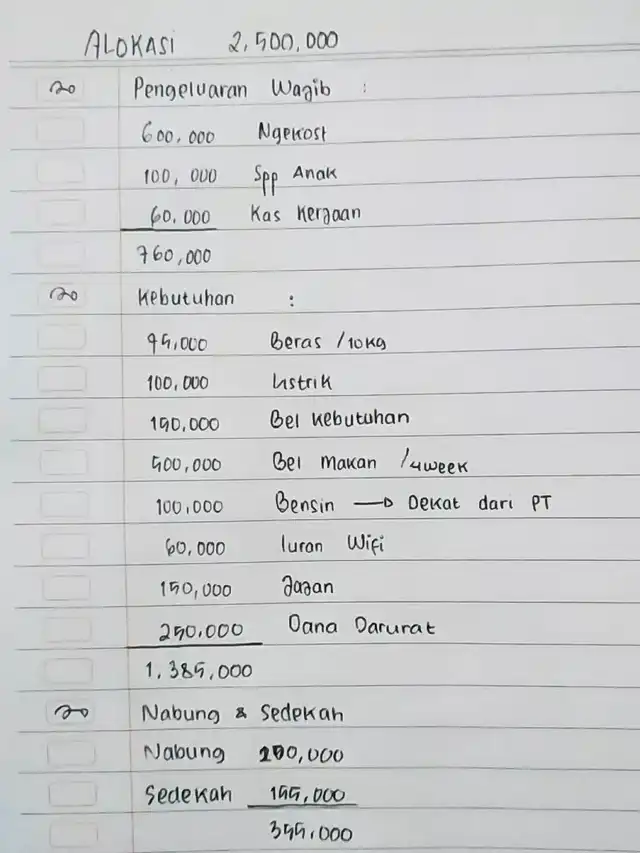 ALOKASI 2,500,000
Pengeluaran Wajib :
600,000 Ngekost
100,000 Spp Anak
60,000 Kas Kerjaan
760,000
Kebutuhan :
75,000 Beras /10kg
100,000 Listrik
150,000 Bel Kebutuhan
500,000 Bel Makan /4week
100,000 Bensin → Dekat dari PT
60,000 Iuran Wifi
150,000 Jajan
250,000 Dana Darurat
1,385,000
Nabung & Sedekah
Nabung 200,000
Sedekah 155,000
355,000